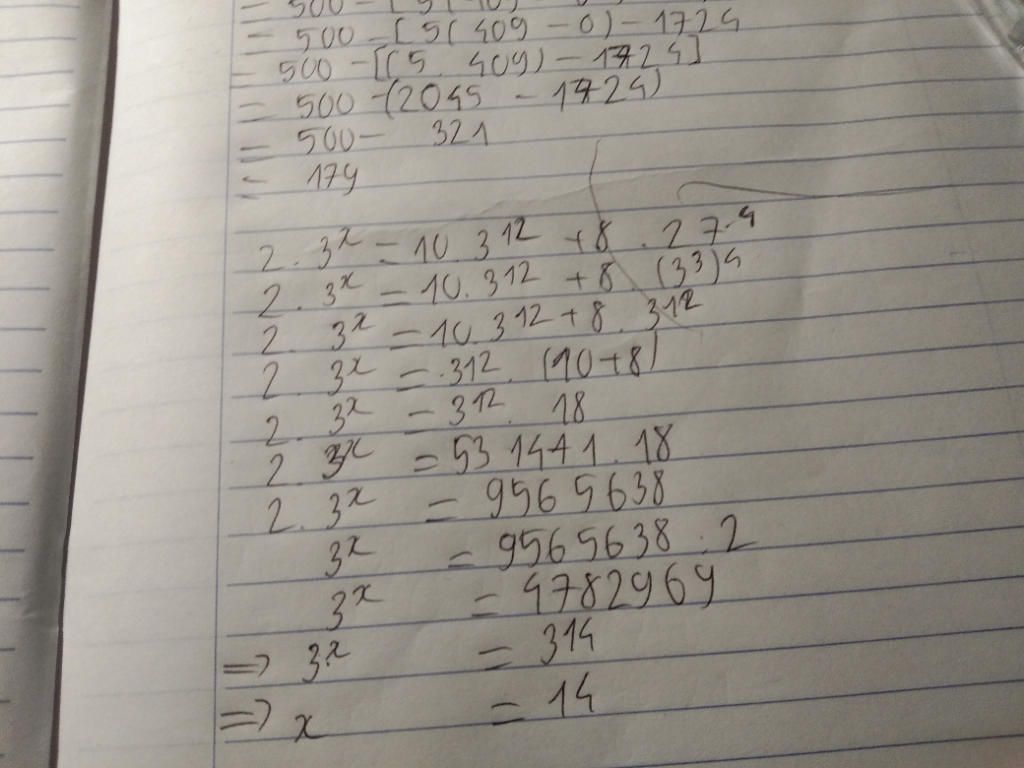 = 500 - [5(409 - 0) - 1724
= 500 - [(5. 409) - 1724]
= 500 - (2045 - 1724)
= 500 - 321
= 179
2. 3ˣ = 10. 3¹² + 8 . 27⁴
2. 3ˣ = 10. 3¹² + 8 (3³)⁴
2. 3ˣ = 10. 3¹² + 8. 3¹²
2. 3ˣ = 3¹². (10+8)
2. 3ˣ = 3¹². 18
2. 3ˣ = 531441. 18
2. 3ˣ = 9565638
3ˣ = 9565638 : 2
3ˣ = 4782969
=> 3ˣ = 3¹⁴
=> x = 14